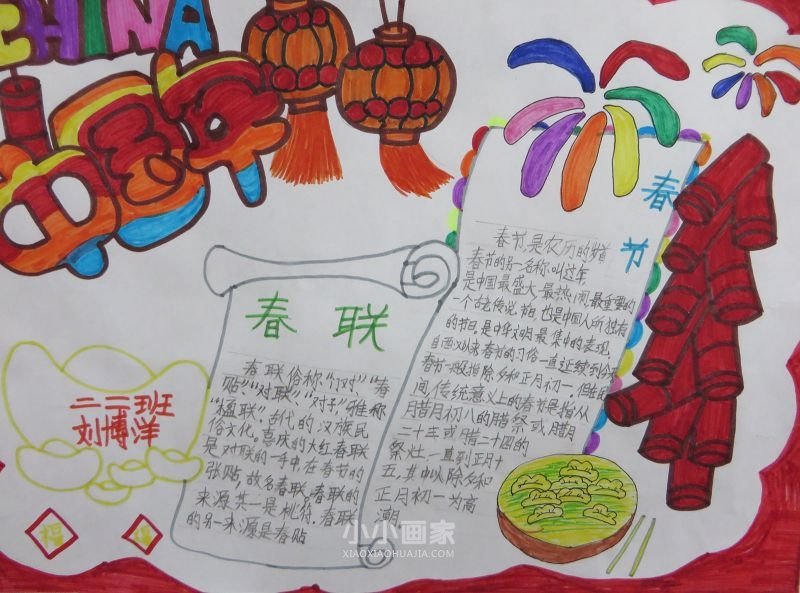 CHINA
中国年
春节
春节是农历的岁首
春节的另一名称叫过年
是中国最盛大、最热闹、最重要的
一个古老传说节日也是中国人所独有
的节日,是中华文明最集中的表现。
自西汉以来春节的习俗一直延续到今天
春节一般指除夕和正月初一但在民
间传统意义上的春节是指从
腊月初八的腊祭或腊月
二十三或腊二十四的
祭灶,一直到正月十
五,其中以除夕和
正月初一为高
潮
春联
春联俗称"门对""春
贴""对联""对子"雅称
"楹联"。古代的汉族民
俗文化。喜庆的大红春联
是对联的一种。在春节的
张贴,故名春联。春联的
来源其二是桃符。春联
的另一来源是春贴
二二班
刘博洋
福
小小画家
XIAOXIAOHUAJIA.COM